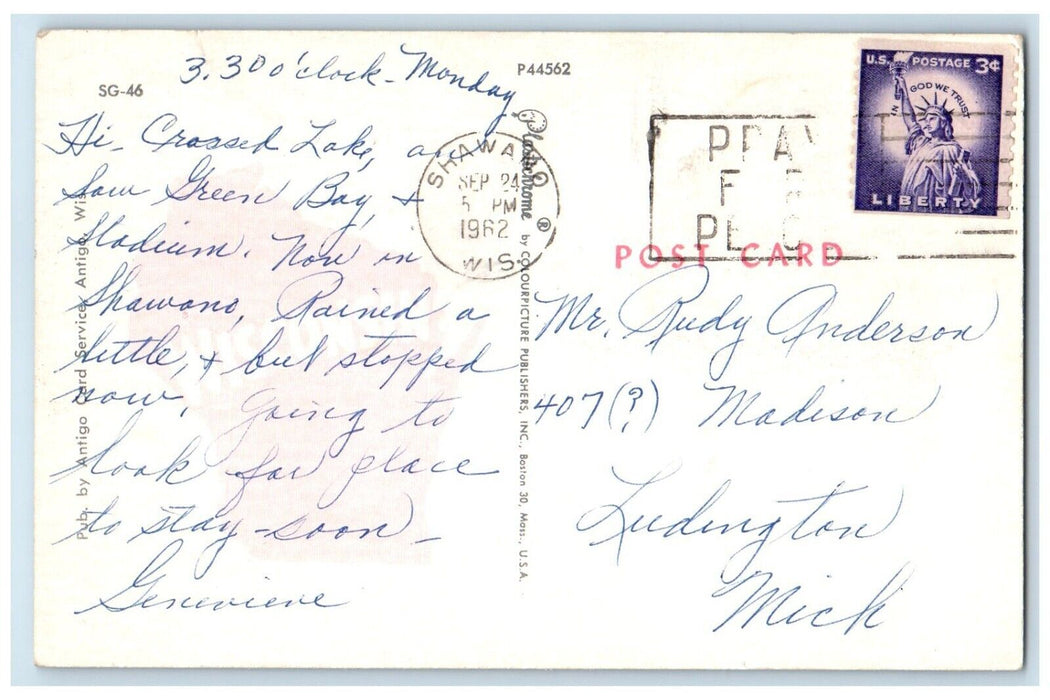 3.30 o'clock - Monday
SG-46
P44562
Hi - Crossed Lake, and
saw Green Bay, +
stadium. Now in
Shawano, Rained a
little, + but stopped
now. Going to
look for place
to stay - soon -
Genevieve
Pub. by Antigo Card Service, Antigo, Wis.
Plastichrome ® by COLOURPICTURE PUBLISHERS, INC., Boston 30, Mass., U.S.A.
SHAWANO
SEP 24
5 PM
1962
WIS.
PRAY
F
PE C
U.S. POSTAGE 3¢
IN GOD WE TRUST
LIBERTY
POST CARD
Mr. Rudy Anderson
407(?) Madison
Ludington
Mich